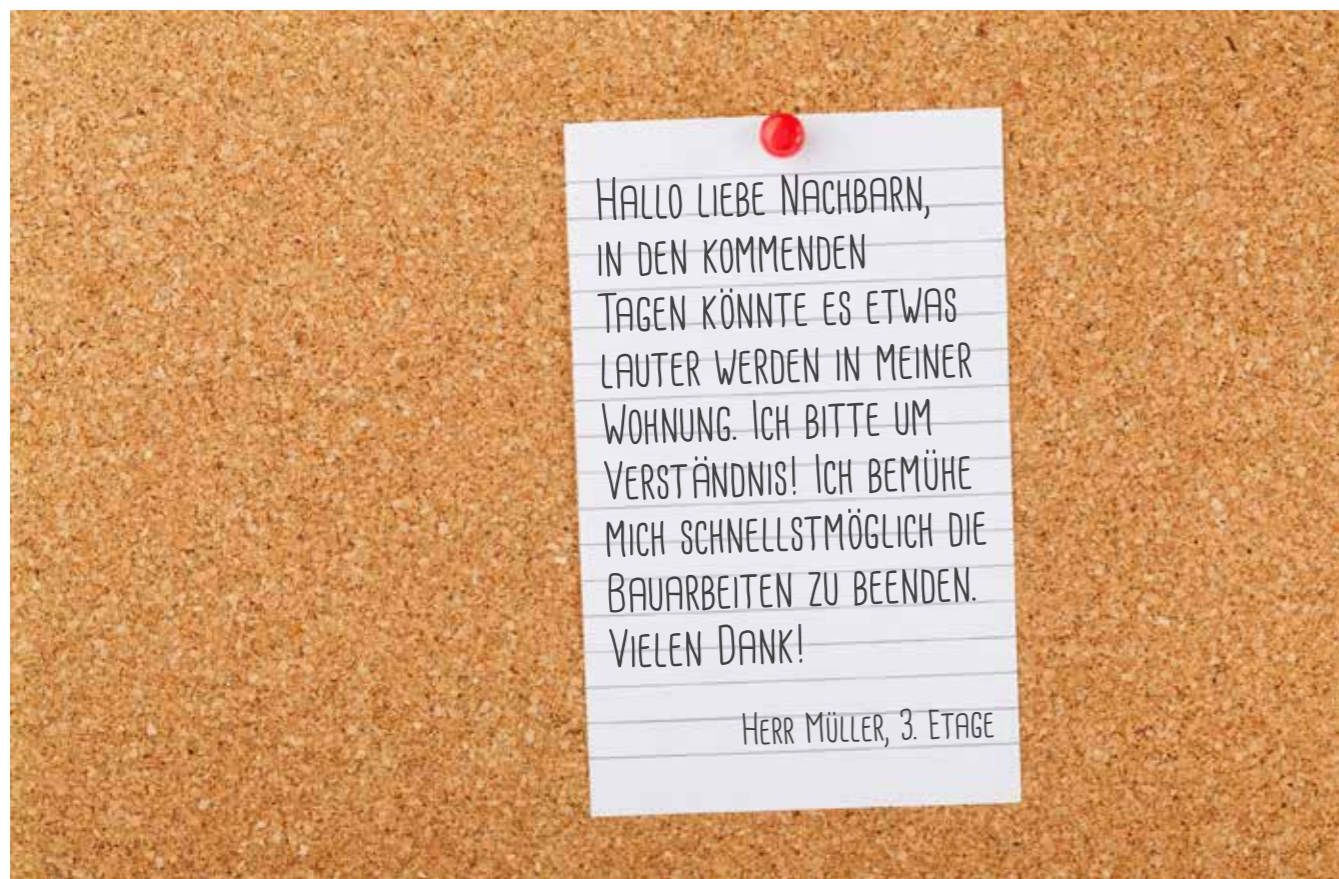 Hallo liebe Nachbarn,
in den kommenden
Tagen könnte es etwas
lauter werden in meiner
Wohnung. Ich bitte um
Verständnis! Ich bemühe
mich schnellstmöglich die
Bauarbeiten zu beenden.
Vielen Dank!
Herr Müller, 3. Etage